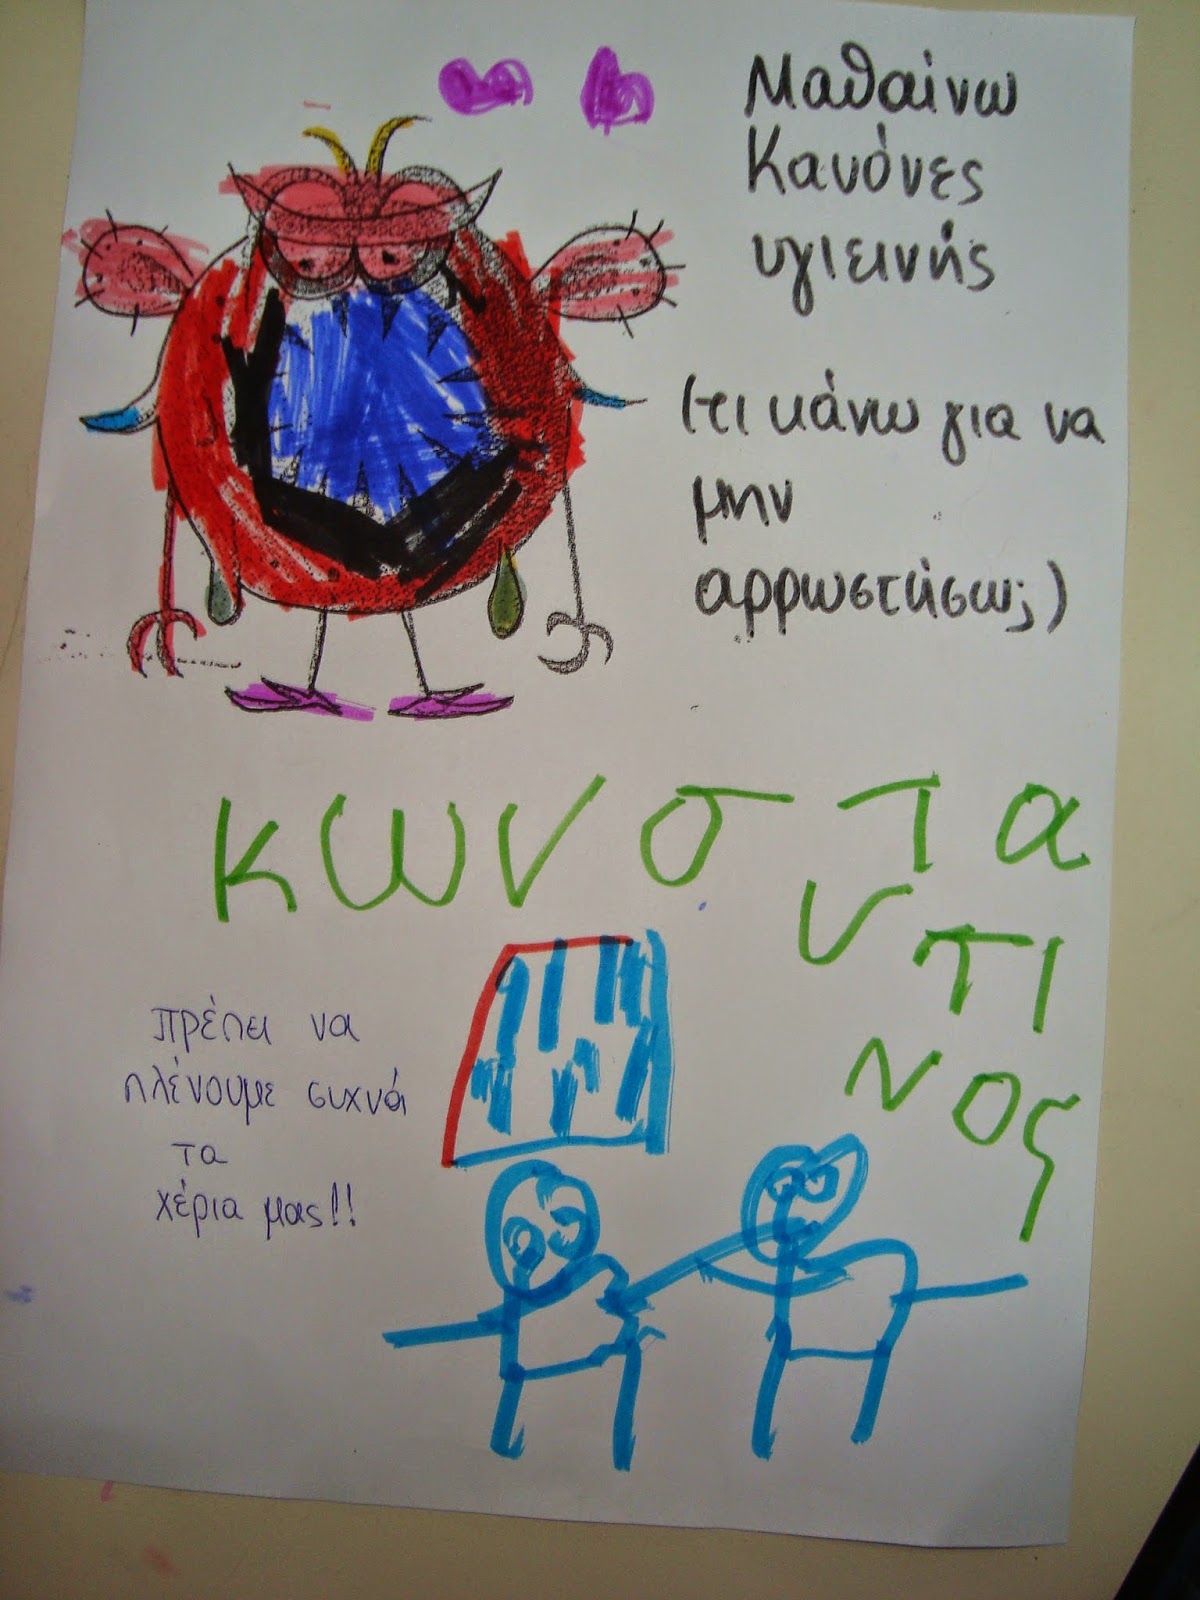 Μαθαίνω
Κανόνες
υγιεινής
(τι κάνω για να
μην
αρρωστήσω;)
κωνστα
ντι
νος
πρέπει να
πλένουμε συχνά
τα
χέρια μας!!